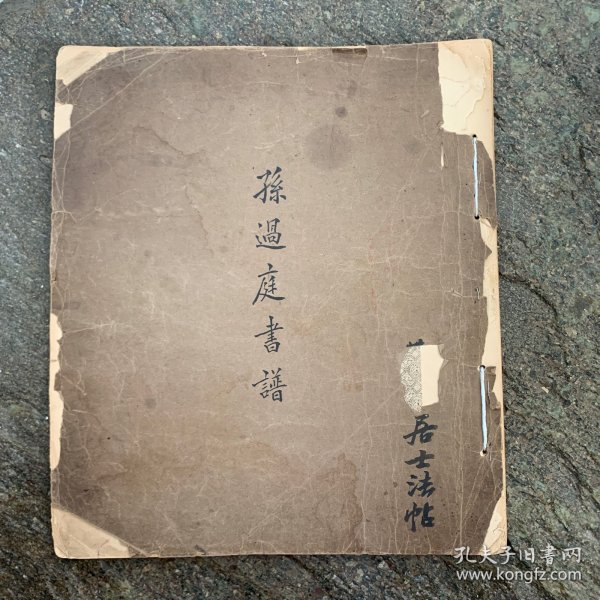 孫過庭書譜
居士法帖
孔夫子旧书网
www.kongfz.com